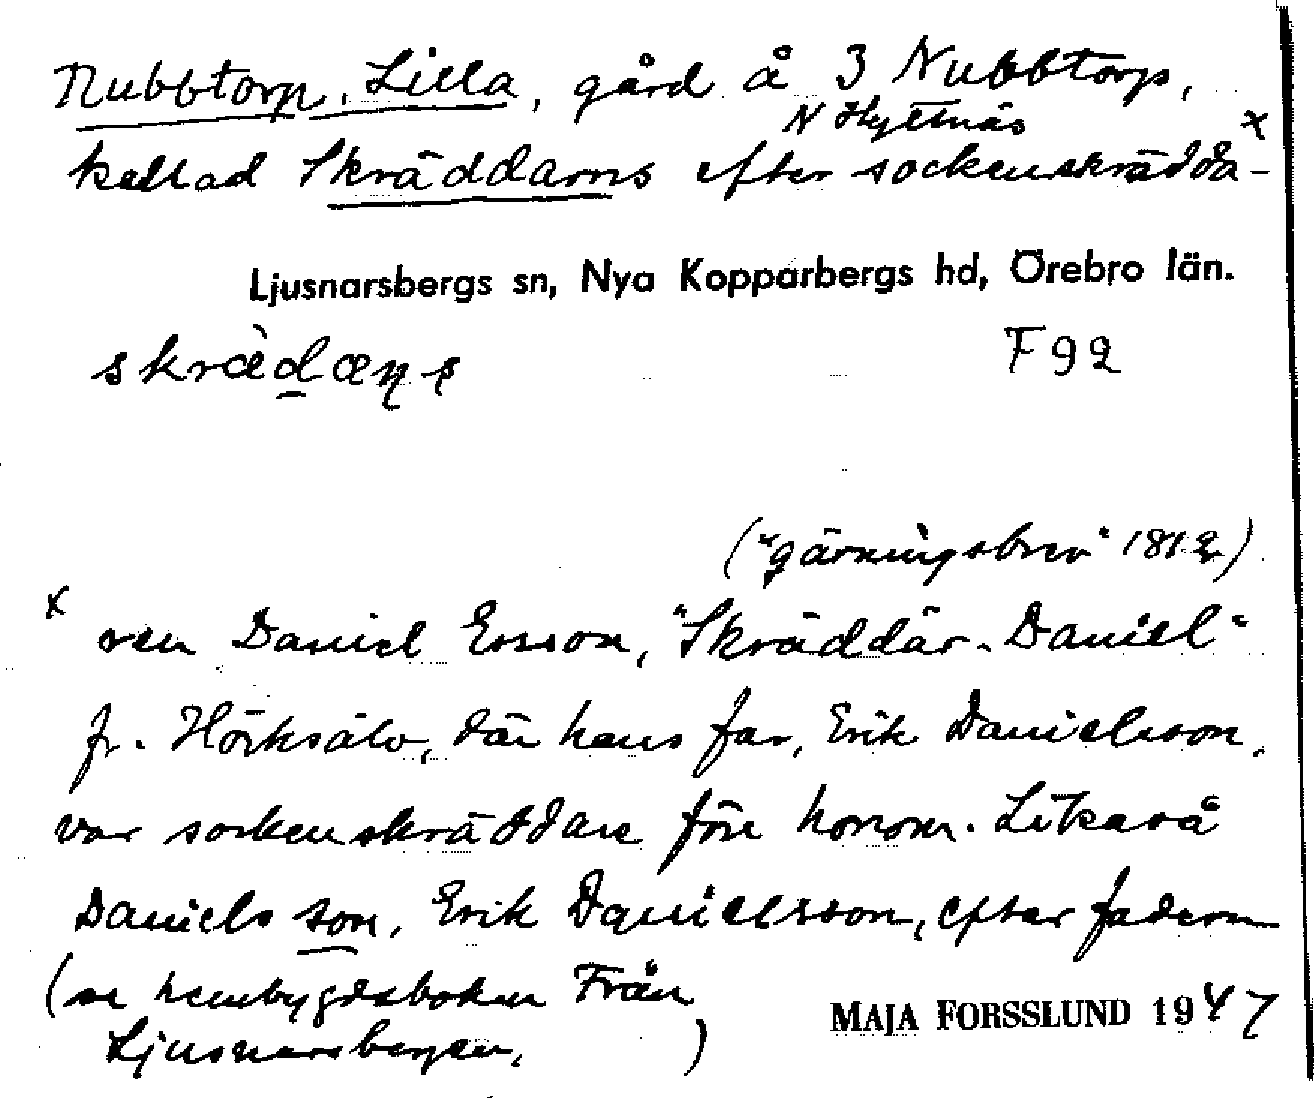 Nubbtorp, Lilla, gård å 3 Nubbtorp,
N Hyttnäs
kallad Skräddarns efter sockenskrädda- x
Ljusnarsbergs sn, Nya Kopparbergs hd, Örebro län.
F92
("gärningsbrev" 1812)
x ren Daniel Ersson, "Skräddar-Daniel"
fr. Hörksälv, där hans far, Erik Danielsson,
var sockenskräddare före honom. Likaså
Daniels son, Erik Danielsson, efter fadern
(se hembygdsboken Från
Ljusnarsbergen,)
MAJA FORSSLUND 1947